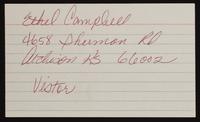 Ethel Campbell
4658 Sherman RD
Atchison KS 66002
Vistor